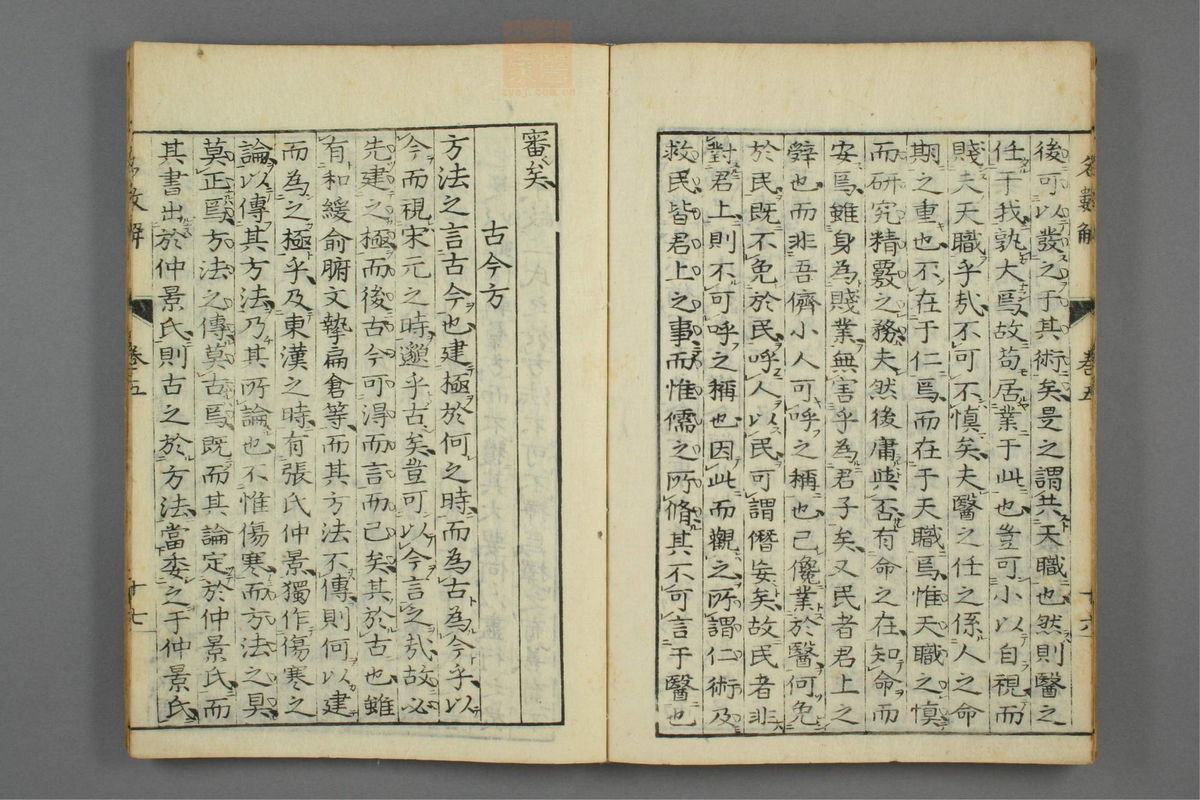 後可以發之于其術矣是之謂共天職也然則醫之
任于我孰大焉故苟居業于此也豈可小以自視而
賤夫天職乎㢤不可不慎矣夫醫之任之係人之命
期之重也不在于仁焉而在于天職焉惟天職之慎
而研究精覈之務夫然後庸與否有命之在知命而
安焉雖身為賤業無害乎為君子矣又民者君上之
辭也而非吾儕小人可呼之稱也已儳業於醫何免
於民既不免於民呼人以民可謂僭妄矣故民者非
對君上則不可呼之稱也因此而觀之所謂仁術及
救民皆君上之事而惟儒之所脩其不可言于醫也
名數解 卷五 十六
審矣
古今方
方法之言古今也建極於何之時而為古為今乎以
今而視宋元之時邈乎古矣豈可以今言之㢤故必
先建之極而後古今可得而言而已矣其於古也雖
有和緩俞腑文摯扁倉等而其方法不傳則何以建
而為之極乎及東漢之時有張氏仲景獨作傷寒之
論以傳其方法乃其所論也不惟傷寒而方法之具
莫正焉方法之傳莫古焉既而其論定於仲景氏而
其書出於仲景氏則古之於方法當委之于仲景氏
名數解 卷五 十七